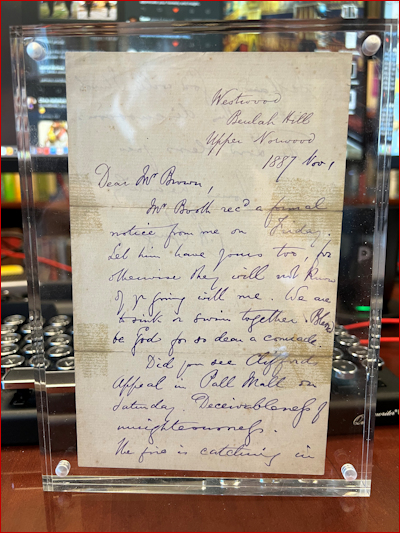 Westwood
Beulah Hill
Upper Norwood
1887 Nov 1
Dear Mr Brown,
Mr Booth recd a final
notice from me on Friday.
Let him have yours too, for
otherwise they will not know
of yr going with me. We are
to sink or swim together. Bless
be God for so dear a comrade.
Did you see Clifford
Appeal in Pall Mall on
Saturday. Deceivableness of
unrighteousness.
The fire is catching in